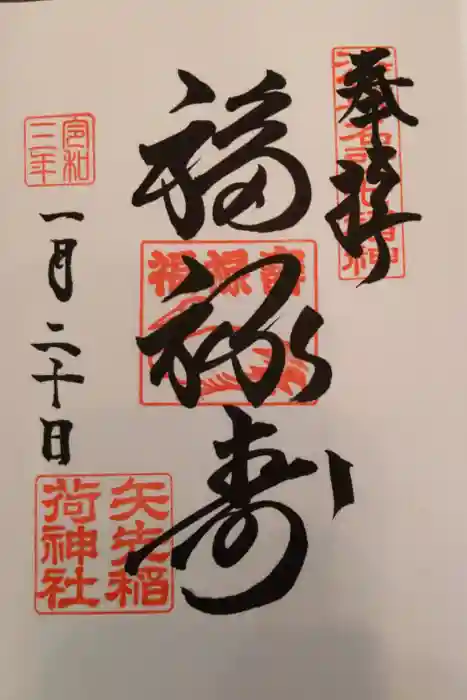 奉拝
福禄寿
福禄寿
令和
三年
一月二十日
矢先稲
荷神社